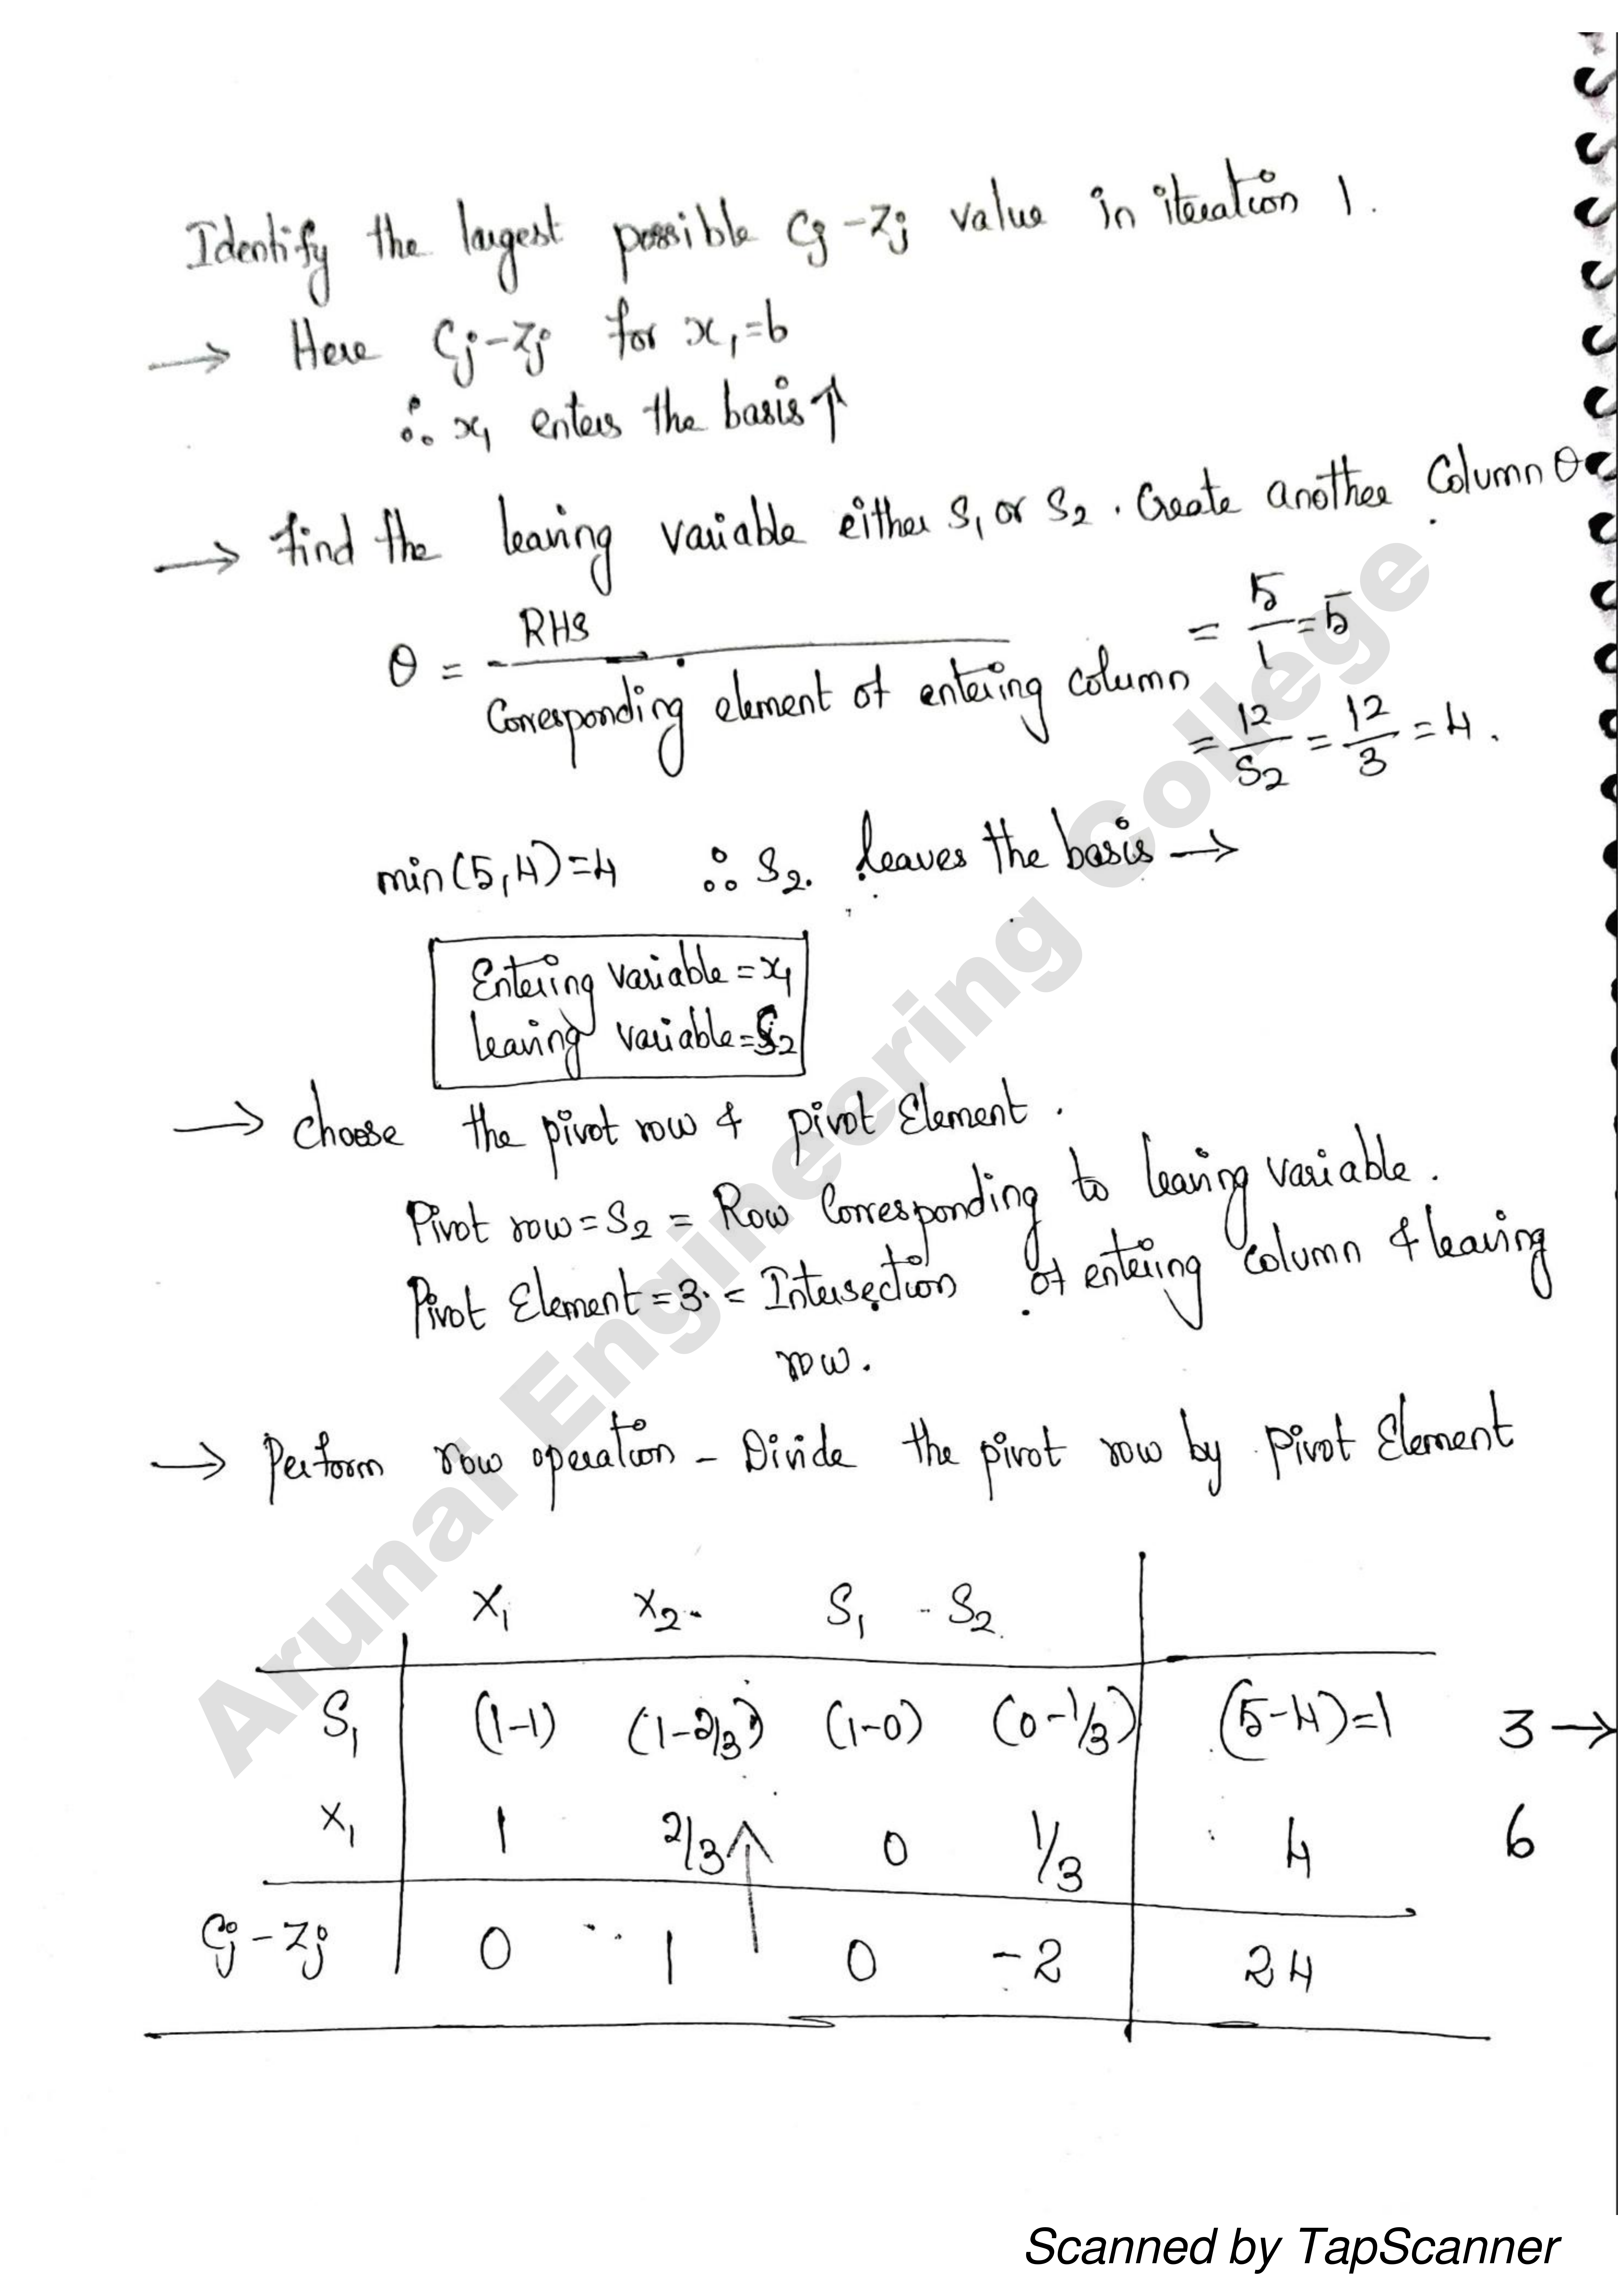 Identify the largest possible Cj - Zj value in iteration 1.
→ Here Cj - Zj for x₁ = 6
∴ x₁ enters the basis ↑
→ find the leaving variable either S₁ or S₂. Create another Column θ
θ = RHS / Corresponding element of entering column = 5/1 = 5
= 12/S₂ = 12/3 = 4.
min(5,4) = 4 ∴ S₂. leaves the basis →
Entering variable = x₁
leaving variable = S₂
→ Choose the pivot row & pivot Element.
Pivot row = S₂ = Row Corresponding to leaving variable.
Pivot Element = 3. = Intersection of entering column & leaving
row.
→ Perform row operation - Divide the pivot row by pivot Element
X₁ X₂ S₁ S₂
S₁ (1-1) (1-2/3) (1-0) (0-1/3) (5-4)=1 3 →
X₁ 1 2/3 ↑ 0 1/3 4 6
Cj - Zj 0 1 0 -2 24
Arunai Engineering College
Scanned by TapScanner